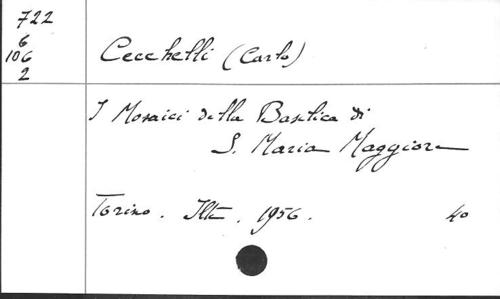 722
6
106
2
Cecchelli (Carlo)
I Mosaici della Basilica di
S. Maria Maggiore
Torino. Ilte. 1956. 40